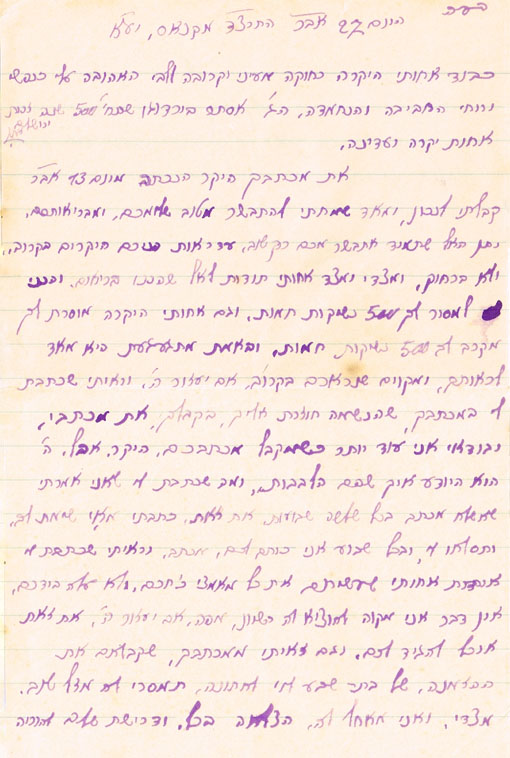 בע״ה
היום 27 אבר התרצד מקנאס, יע״א
כבוד אחותי היקרה רחוקה מעיני וקרובה ללבי האהובה עלי כנפשי
ורוחי החביבה והנחמדה, הג׳ אסתר שתחי׳ 500 שנה
אחות יקרה ועדינה,
את מכתבך היקר הנכתב מיום 13 אבר
קבלתי לנכון, ומאד שמחתי להתבשר מטוב שלומכם, ומבריאותכם,
יתן האל שתמיד אתבשר מכם רק טוב, עד ראות פניכם היקרים בקרוב,
ולא ברחוק, ומצדי ומצד אחותי תודות לאל שהננו בריאים. והנני
למסור לך 500 נשיקות חמות, וגם אחותי היקרה מוסרת לך
מקרב לב 500 נשיקות חמות, ובאמת מתגעגעת היא מאד
לראותך, ומקווים שנראכם בקרוב, אם יעזור ה׳, וראיתי שכתבת
לי במכתבך, שהנשמה חוזרת אליך, בקבלך, את מכתבי,
ובודאי אני עוד יותר כשמקבל מכתבכם, היקר, אבל, ה׳
הוא היודע איך שהם הלבבות, ומה שכתבת לי שאני אמרתי
שאשלח מכתב בכל שלשה שבועות, את זאת, כתבתי
ובכל שבוע אני כותב לכם, מכתב, וראיתי שכתבת לי
אחותי שעשיתם את כל מאמצי כחכם, ולא עלה בידכם,
אין דבר אני מקוה להוציא לה רשיון, מפה, אם יעזור ה׳, את זאת
אוכל להגיד לכם. וגם ראיתי ממכתבך, שקבלתם את
ההזמנה, של בת שבע לחתונה, תמסרי לה מזל טוב.
מצדי, ואני מאחל לה, הצלחה בכל, ודרישת שלום להוריה